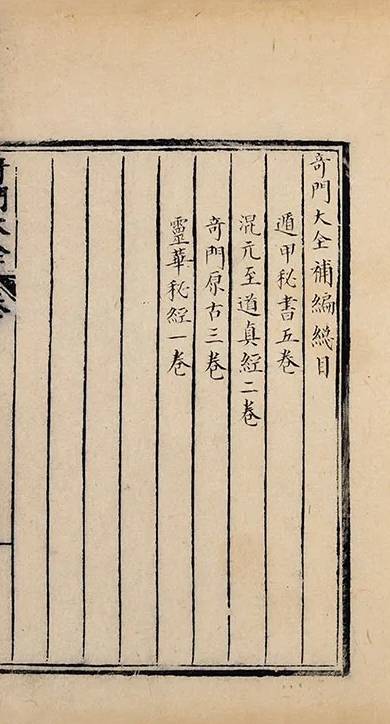 奇門大全補編緫目
遁甲秘書五卷
混元至道真經二卷
奇門原古三卷
靈華秘經一卷
奇門大全